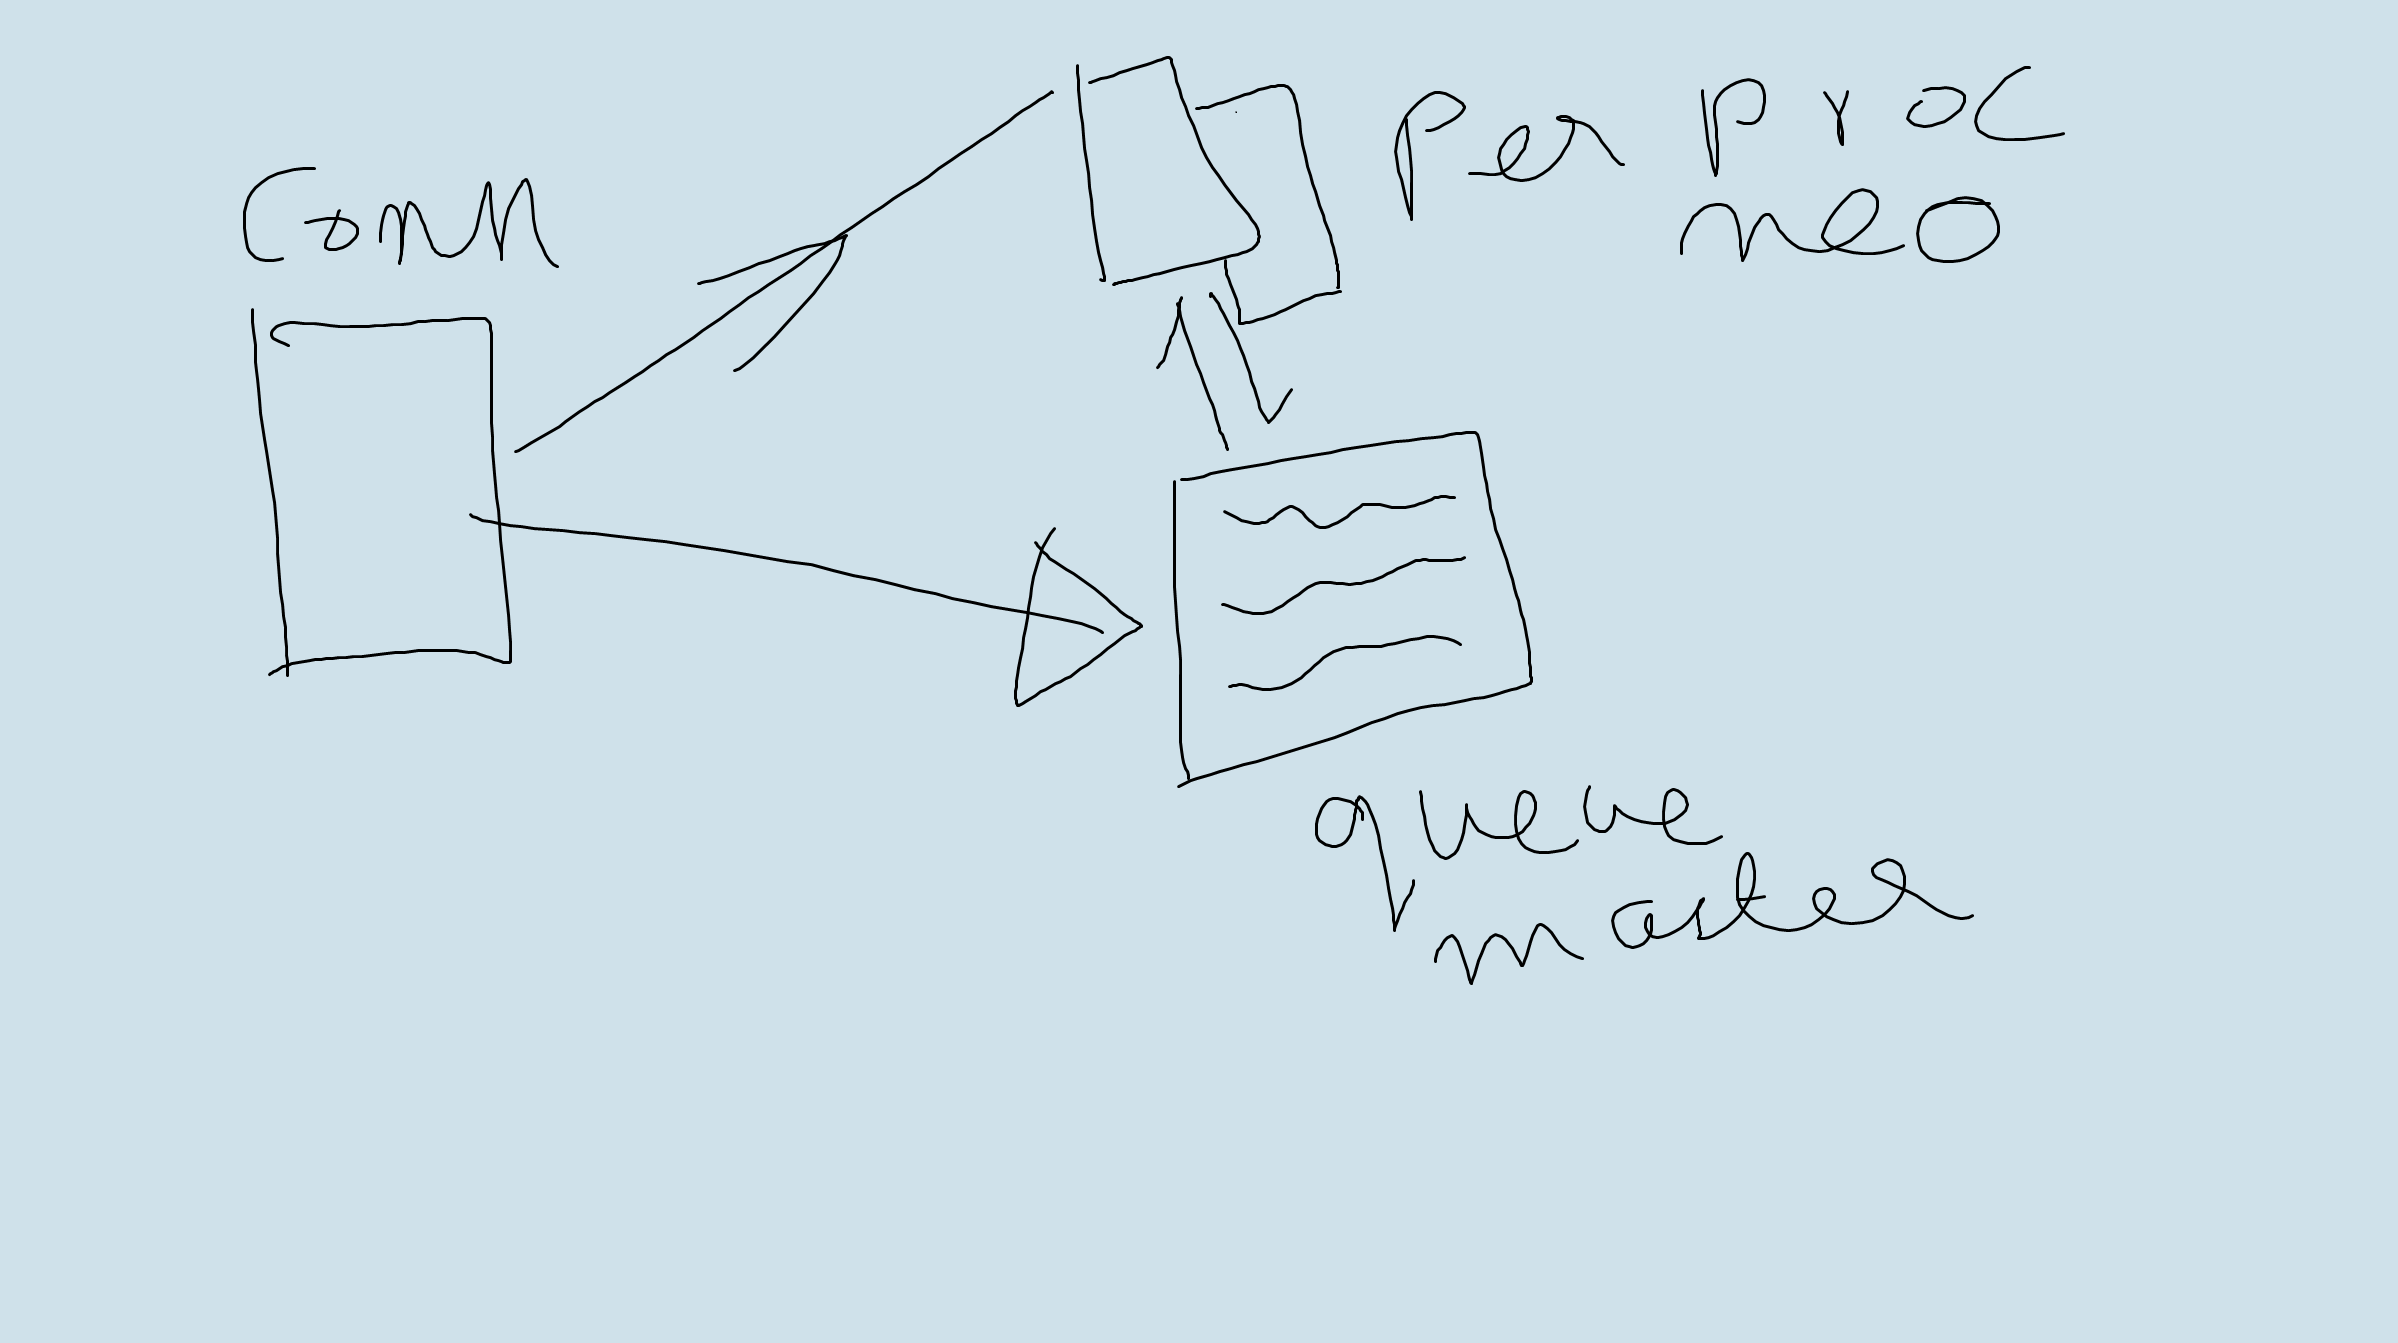 Conn
per proc
neo
queue
master